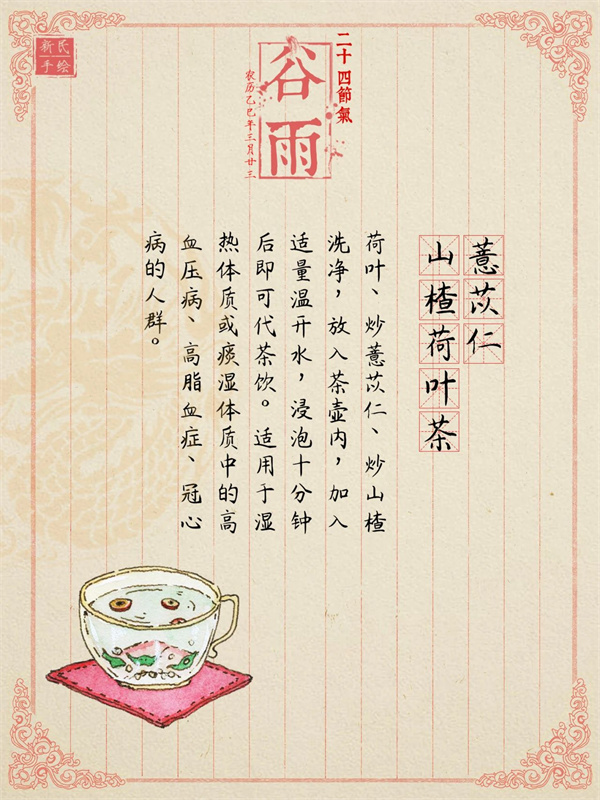 新民
手绘
二十四節氣
谷雨
农历乙巳年三月廿三
薏苡仁
山楂荷叶茶
荷叶、炒薏苡仁、炒山楂
洗净，放入茶壶内，加入
适量温开水，浸泡十分钟
后即可代茶饮。适用于湿
热体质或痰湿体质中的高
血压病、高脂血症、冠心
病的人群。